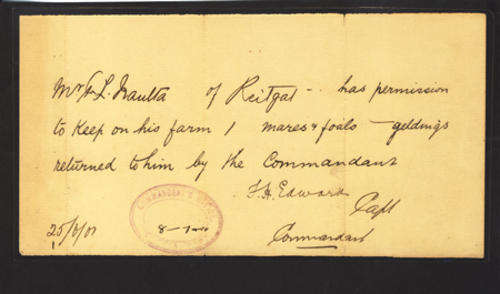 Mr H. L. Nautta of Reitgat - has permission
to keep on his farm 1 mares & foals - geldings
returned to him by the Commandant
F. H. Edward
Capt
Commandant
COMMANDANT'S OFFICE
8-7-
25/6/01